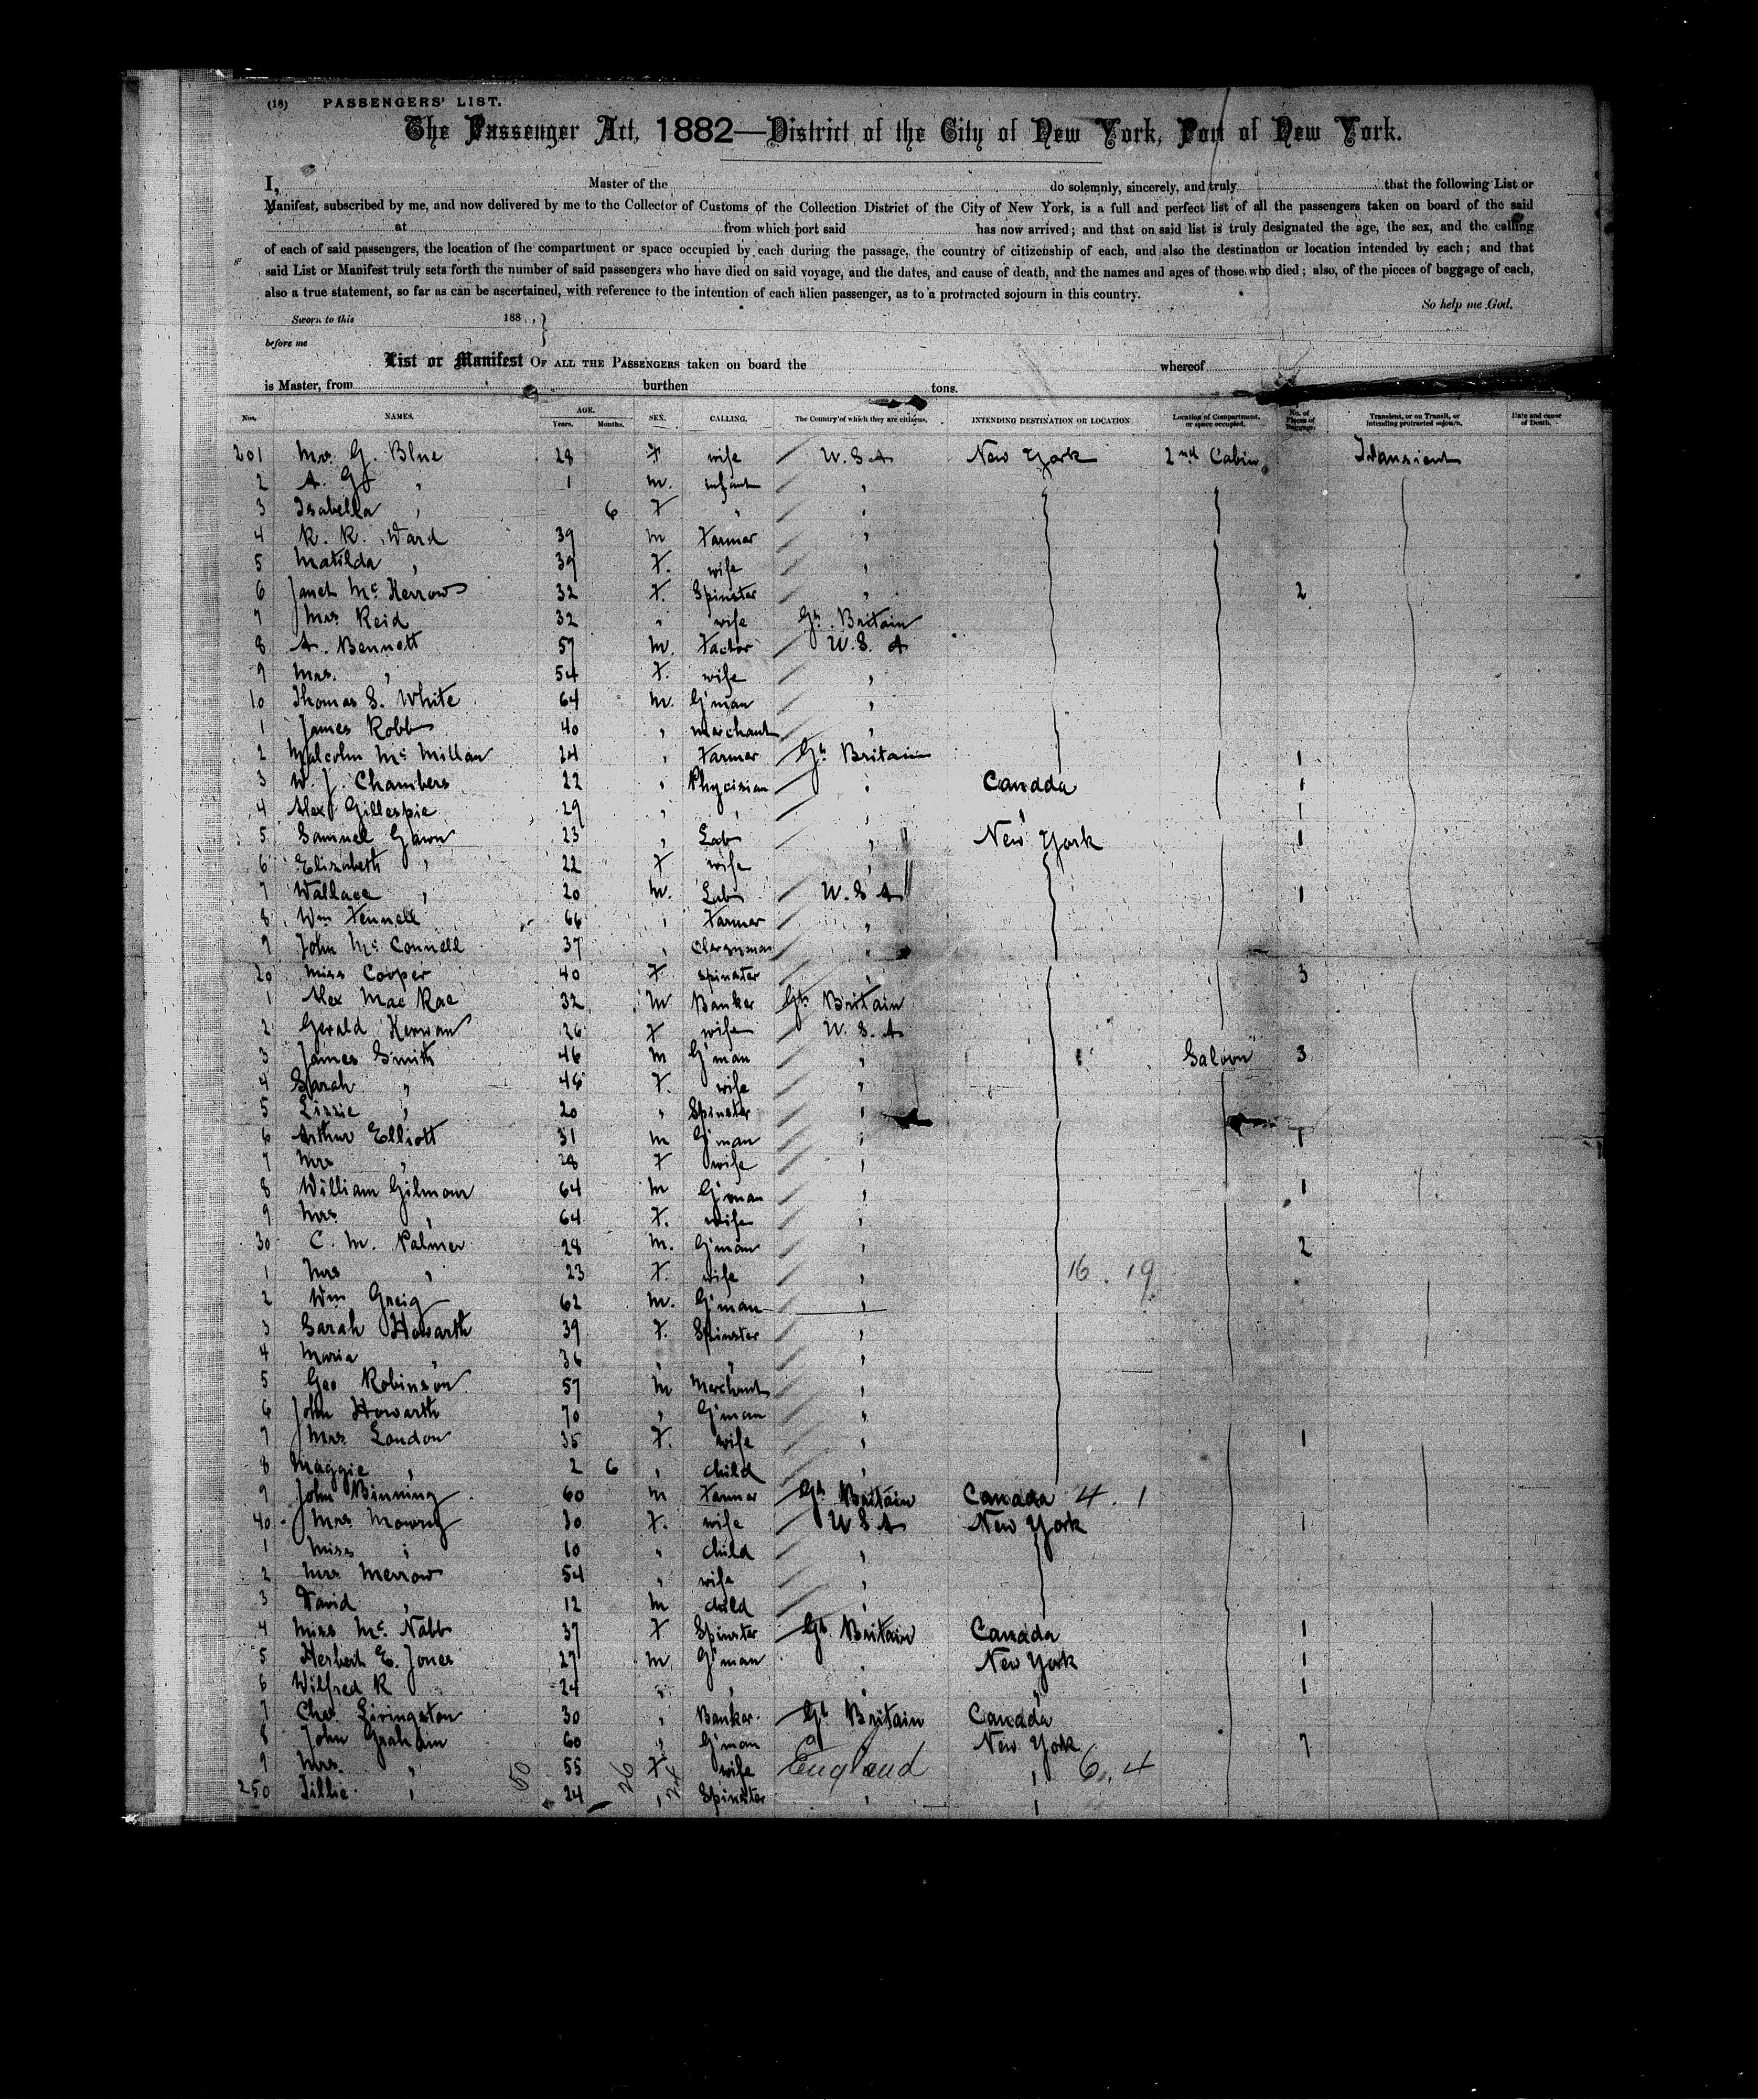 (18) PASSENGERS' LIST.
The Passenger Act, 1882—District of the City of New York, Port of New York.
I, Master of the do solemnly, sincerely, and truly that the following List or
Manifest, subscribed by me, and now delivered by me to the Collector of Customs of the Collection District of the City of New York, is a full and perfect list of all the passengers taken on board of the said
at from which port said has now arrived; and that on said list is truly designated the age, the sex, and the calling
of each of said passengers, the location of the compartment or space occupied by each during the passage, the country of citizenship of each, and also the destination or location intended by each; and that
said List or Manifest truly sets forth the number of said passengers who have died on said voyage, and the dates, and cause of death, and the names and ages of those who died; also, of the pieces of baggage of each,
also a true statement, so far as can be ascertained, with reference to the intention of each alien passenger, as to a protracted sojourn in this country.
So help me God.
Sworn to this 188 , }
before me
List or Manifest OF ALL THE PASSENGERS taken on board the whereof
is Master, from burthen tons.
Nos. NAMES. AGE. Years. Months. SEX. CALLING. The Country of which they are citizens. INTENDING DESTINATION OR LOCATION Location of Compartment, or space occupied. No. of Pieces of Baggage. Transient, or on Transit, or intending protracted sojourn. Date and cause of Death.
201 Mrs G. Blue 28 F wife U.S A New York 2nd Cabin Transient
2 A. G " 1 m. infant "
3 Isabella " 6 F " "
4 R. R. Ward 39 m Farmer "
5 Matilda " 39 F. wife "
6 Janet Mc Kerrow 32 F. Spinster " 2
7 Mrs Reid 32 " wife Gt. Britain
8 A. Bennett 57 m. Factor U.S. A
9 Mrs. " 54 F. wife "
10 Thomas S. White 64 m. G'man "
1 James Robb 40 " merchant "
2 Malcolm Mc Millan 24 " Farmer Gt Britain 1
3 W. J. Chambers 22 " Phycisian " Canada 1
4 Alex Gillespie 29 " " " " 1
5 Samuel Gawn 23 " Lab " New York 1
6 Elizabeth " 22 F wife "
7 Wallace " 20 m. Lab U.S A 1
8 Wm Fennell 66 " Farmer "
9 John Mc Connell 37 " Clergyman "
20 Miss Cooper 40 F spinster " 3
1 Alex Mac Rae 32 m Banker Gt Britain
2 Gerald Kerwan 26 F wife U.S. A
3 James Smith 46 m G'man " Saloon 3
4 Sarah " 46 F. wife "
5 Lizzie " 20 " Spinster "
6 Arthur Elliott 31 m G'man " 1
7 Mrs " 28 F wife "
8 William Gilmour 64 m G'man " 1
9 Mrs " 64 F. wife "
30 C. M. Palmer 28 m. G'man " 2
1 Mrs " 23 F. wife " 16 . 19
2 Wm Greig 62 m. G'man "
3 Sarah Howarth 39 F. Spinster "
4 Maria " 36 " " "
5 Geo Robinson 57 m Merchant "
6 John Howarth 70 " G'man "
7 Mrs London 35 F. wife " 1
8 Maggie " 2 6 " child "
9 John Binning 60 m Farmer Gt Britain Canada 4 . 1
40 Mrs Mowrey 30 F. wife U S A New York 1
1 Miss " 10 " child "
2 Mrs Merrow 54 " wife "
3 David " 12 m child "
4 Miss Mc Nabb 37 F Spinster Gt Britain Canada 1
5 Herbert E. Jones 27 m G'man " New York 1
6 Wilfred R " 24 " " " " 1
7 Chas. Livingston 30 " Banker Gt Britain Canada
8 John Graham 60 " G'man New York 7
9 Mrs. " 55 F. wife England " 6.4
250 Tillie " 24 " Spinster " "
50 26 24